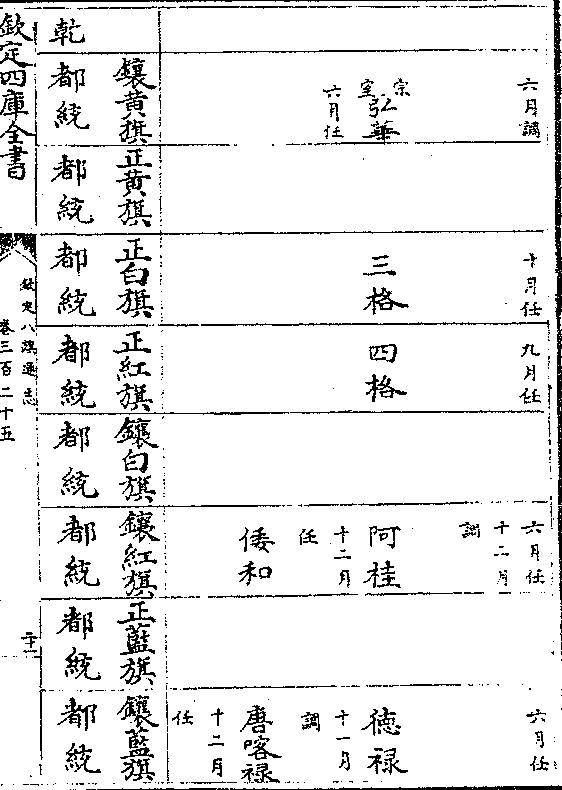 六月調
宗室弘華
六月任
鑲黃旗
都統
正黃旗
都統
十月任
三格
正白旗
都統
九月任
四格
正紅旗
都統
鑲白旗
都統
六月任
十二月
調
阿桂
十二月
任
倭和
鑲紅旗
都統
正藍旗
都統
六月任
德禄
十一月
調
唐喀禄
十二月
任
鑲藍旗
都統
乾
欽定四庫全書
欽定八旗通志
卷三百二十五
二十一